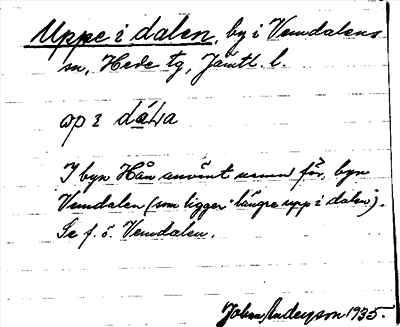 Uppe i dalen, by i Vemdalens
sn, Hede tg, Jämtl. l.
op i dáLa
I byn Hån använt namn för byn
Vemdalen (som ligger längre upp i dalen).
Se f. ö. Vemdalen.
Johan Anderson 1935.